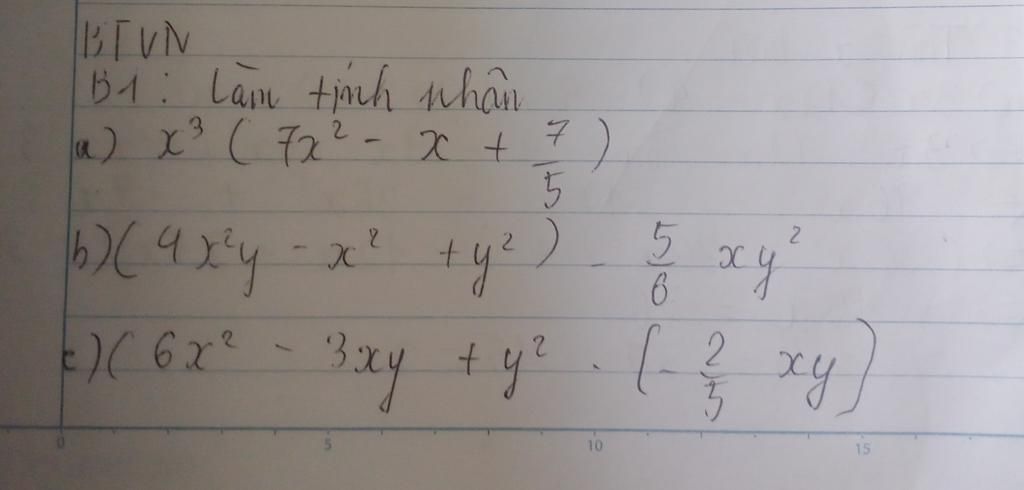 BTVN
B1: Làm tính nhân
a) x³ ( 7x² - x + 7/5 )
b) ( 4x²y - x² + y² ) - 5/6 xy²
c) ( 6x² - 3xy + y² . ( - 2/5 xy )
0 5 10 15